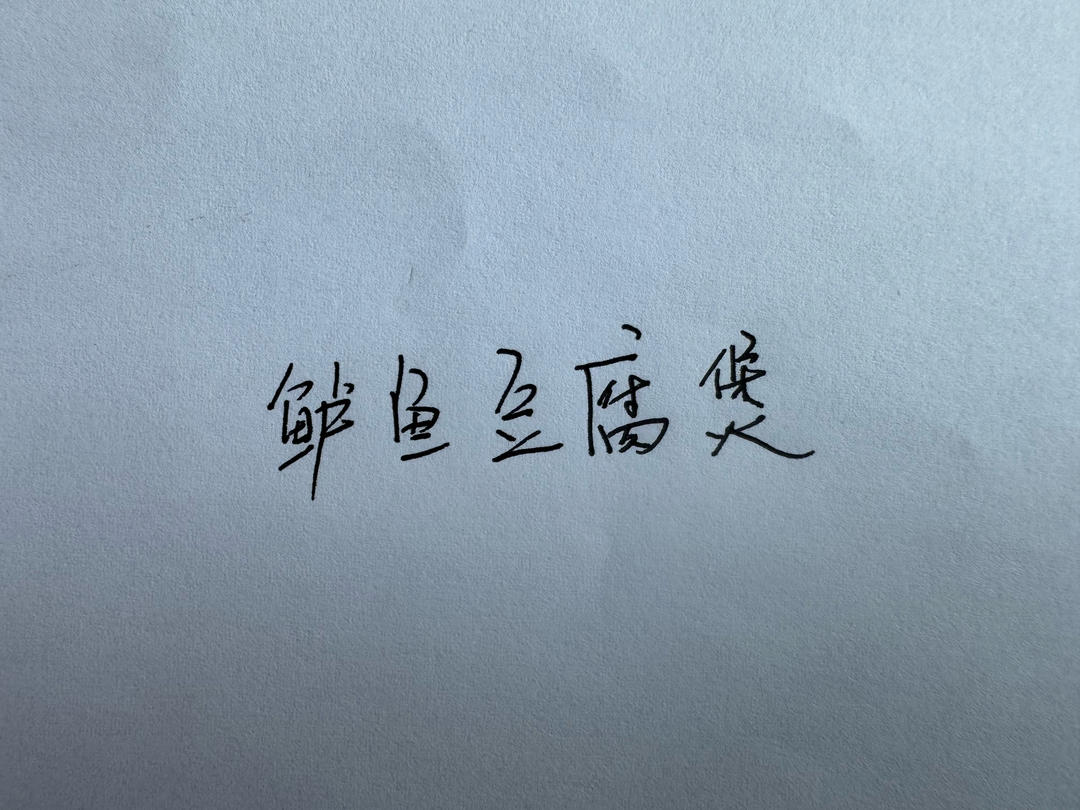 鲈鱼豆腐煲